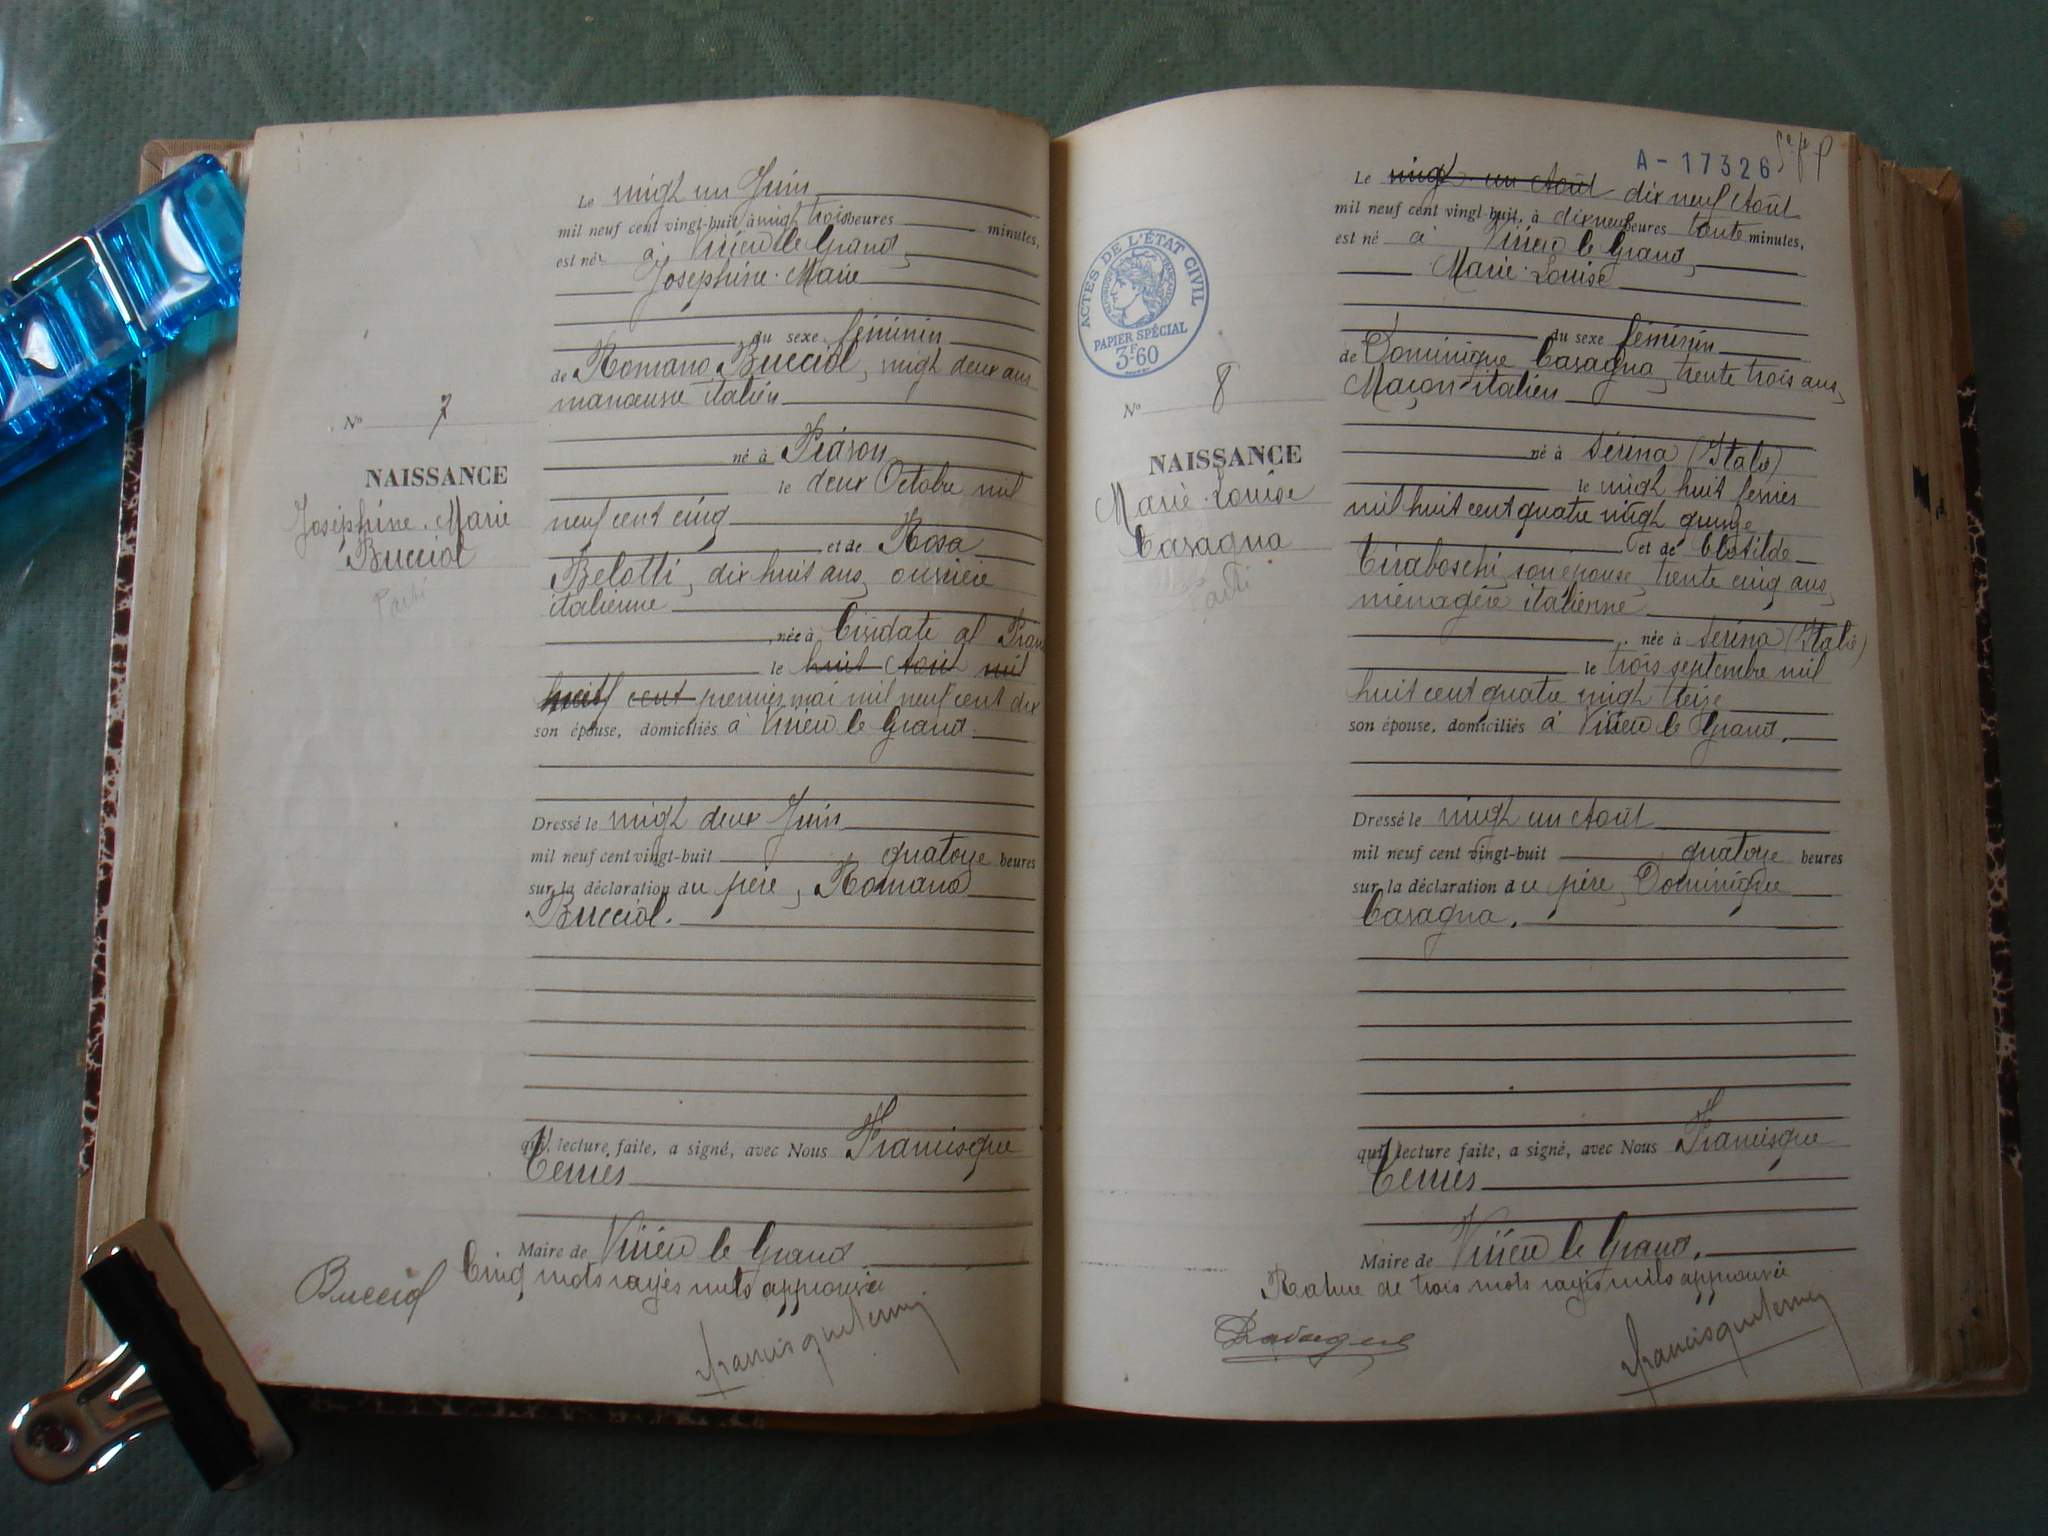 Le vingt un Juin
mil neuf cent vingt-huit à vingt trois heures minutes,
est né à Virieu le Grand,
Joséphine Marie
du sexe féminin
de Romano Bucciol, vingt deux ans
manœuvre italien
né à
le deux Octobre mil
neuf cent cinq
et de Rosa
Belotti, dix huit ans, ouvrière
italienne
, née à Cividate al
le huit Avril mil
huit cent premier mai mil neuf cent dix
son épouse, domiciliés à Virieu le Grand.
Nº 7
NAISSANCE
Joséphine Marie
Bucciol
Parti
Dressé le vingt deux Juin
mil neuf cent vingt-huit quatorze heures
sur la déclaration du père, Romano
Bucciol.
qui, lecture faite, a signé, avec Nous Francisque
Ternes
Maire de Virieu le Grand
Cinq mots rayés nuls approuvés
Bucciol
A - 17326
Le vingt un Août dix neuf Août
mil neuf cent vingt-huit, à dix neuf heures trente minutes,
est né à Virieu le Grand,
Marie Louise
du sexe féminin
de Dominique Casagna, trente trois ans,
Maçon italien
né à Sérina (Italie)
le vingt huit février
mil huit cent quatre vingt quinze
et de Clotilde
Tiraboschi, son épouse, trente cinq ans,
ménagère italienne
, née à Serina (Italie)
le trois septembre mil
huit cent quatre vingt treize
son épouse, domiciliés à Virieu le Grand,
ACTES DE L'ÉTAT CIVIL
PAPIER SPÉCIAL
3F60
Nº 8
NAISSANCE
Marie Louise
Casagna
Parti
Dressé le vingt un Août
mil neuf cent vingt-huit quatorze heures
sur la déclaration du père, Dominique
Casagna.
qui, lecture faite, a signé, avec Nous Francisque
Ternes
Maire de Virieu le Grand.
Rature de trois mots rayés nuls approuvée